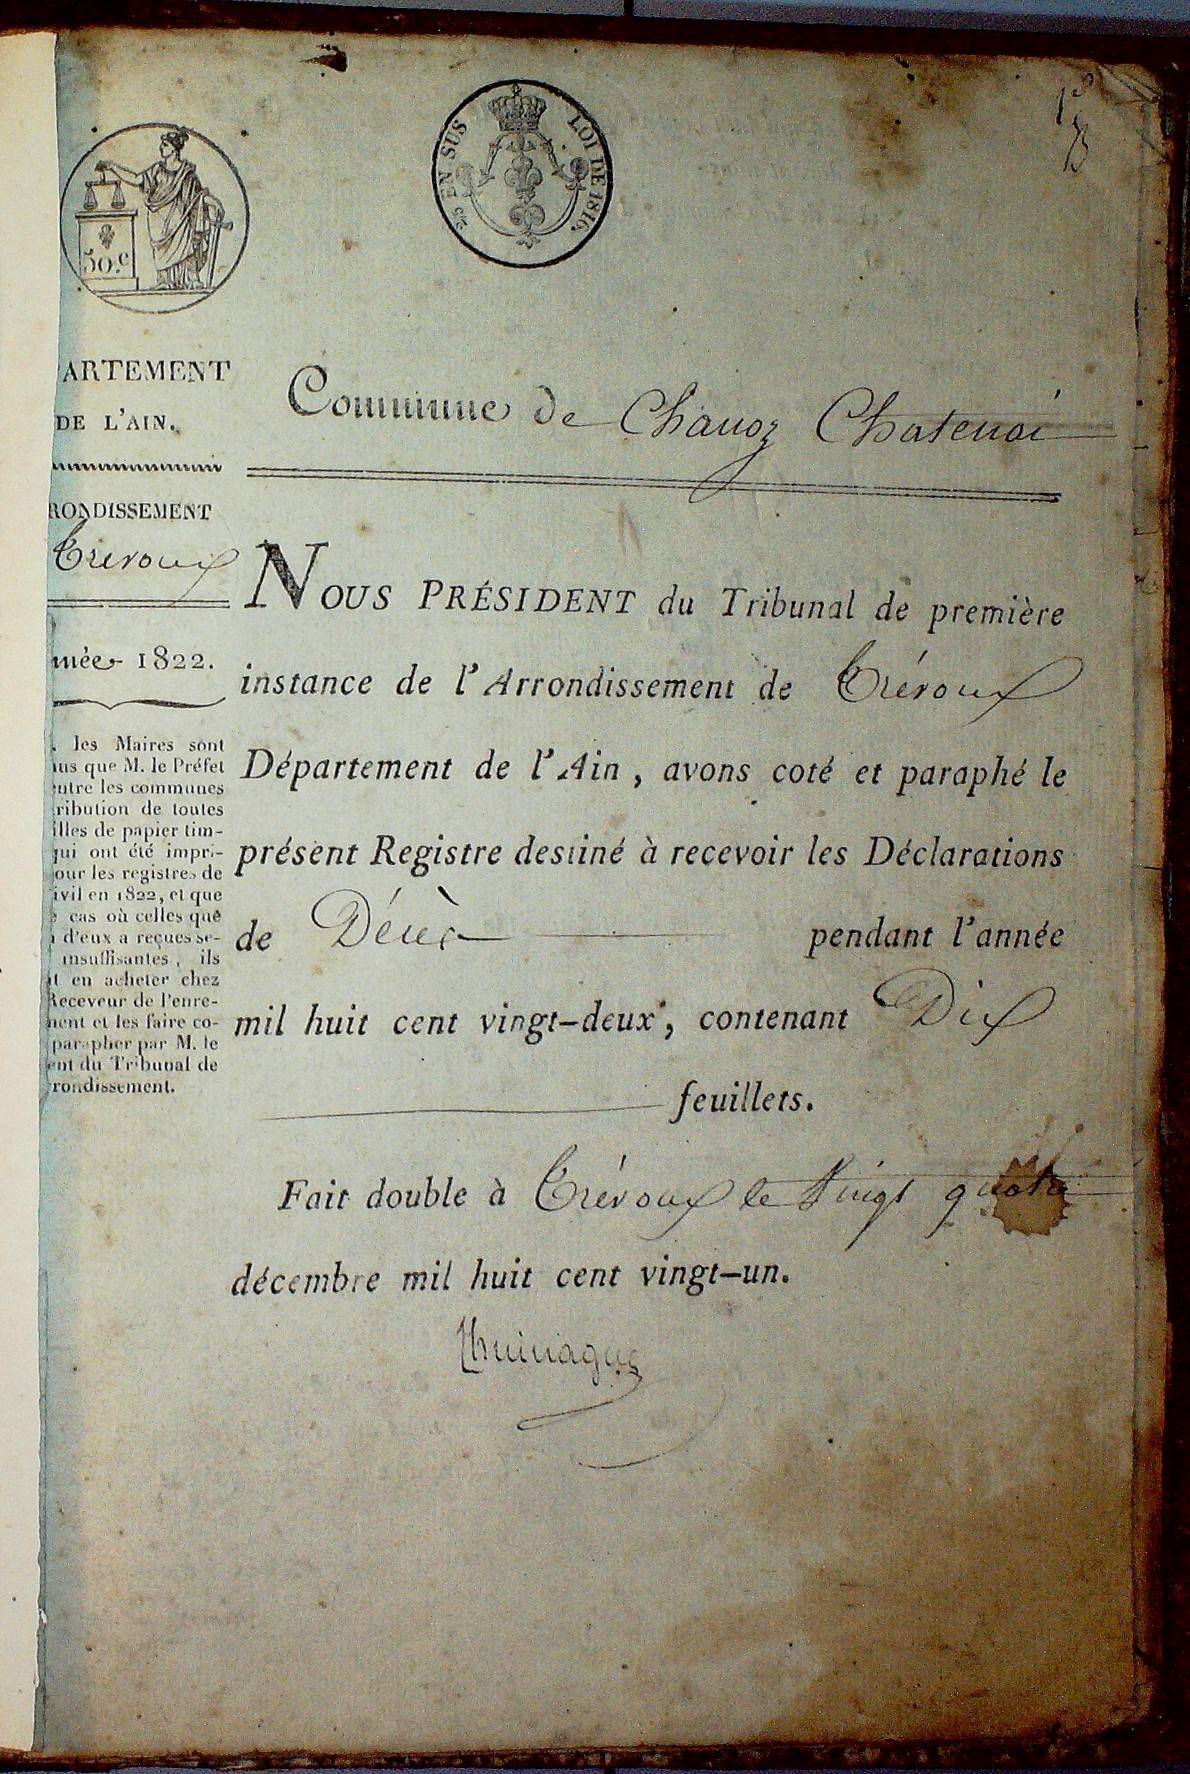 50.c
EN SUS
LOI DE 1816.
ARTEMENT
DE L'AIN.
RONDISSEMENT
Trévoux
née 1822.
. les Maires sont
us que M. le Préfet
ntre les communes
ribution de toutes
illes de papier tim-
qui ont été impri-
our les registres de
ivil en 1822, et que
cas où celles que
d'eux a reçues se-
insuffisantes, ils
t en acheter chez
Receveur de l'enre-
ment et les faire co-
parapher par M. le
ent du Tribunal de
rondissement.
Commune de Chanoz Chatenai
NOUS PRÉSIDENT du Tribunal de première
instance de l'Arrondissement de Trévoux
Département de l'Ain, avons coté et paraphé le
présent Registre destiné à recevoir les Déclarations
de Décès pendant l'année
mil huit cent vingt-deux, contenant Dix
feuillets.
Fait double à Trévoux le Vingt quatre
décembre mil huit cent vingt-un.